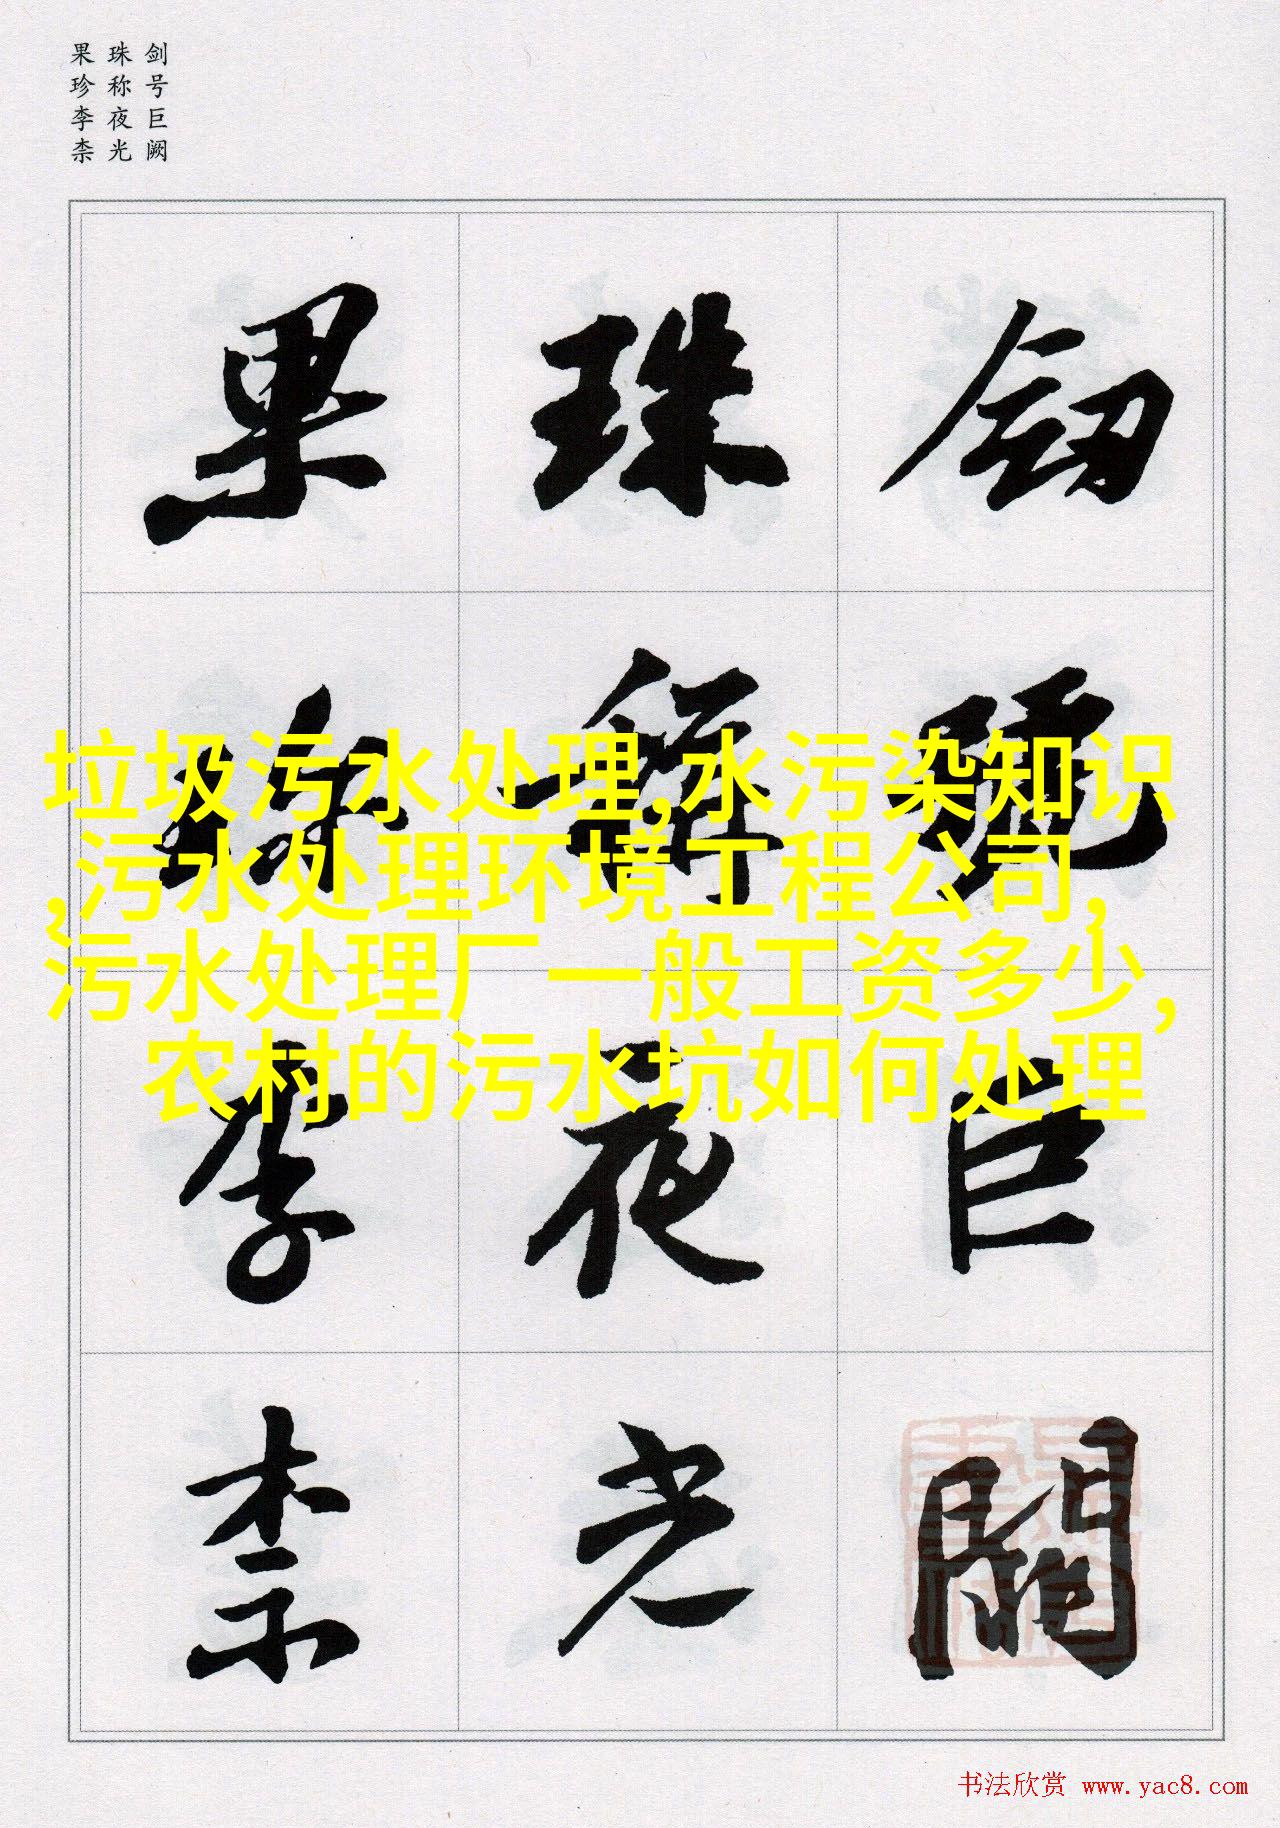 剑号巨阙
珠称夜光
果珍李柰
劎號巨闕
珠稱夜光
果珍李柰
垃圾污水处理,水污染知识
,污水处理环境工程公司,
污水处理厂一般工资多少,
农村的污水坑如何处理
书法欣赏 www.yac8.com